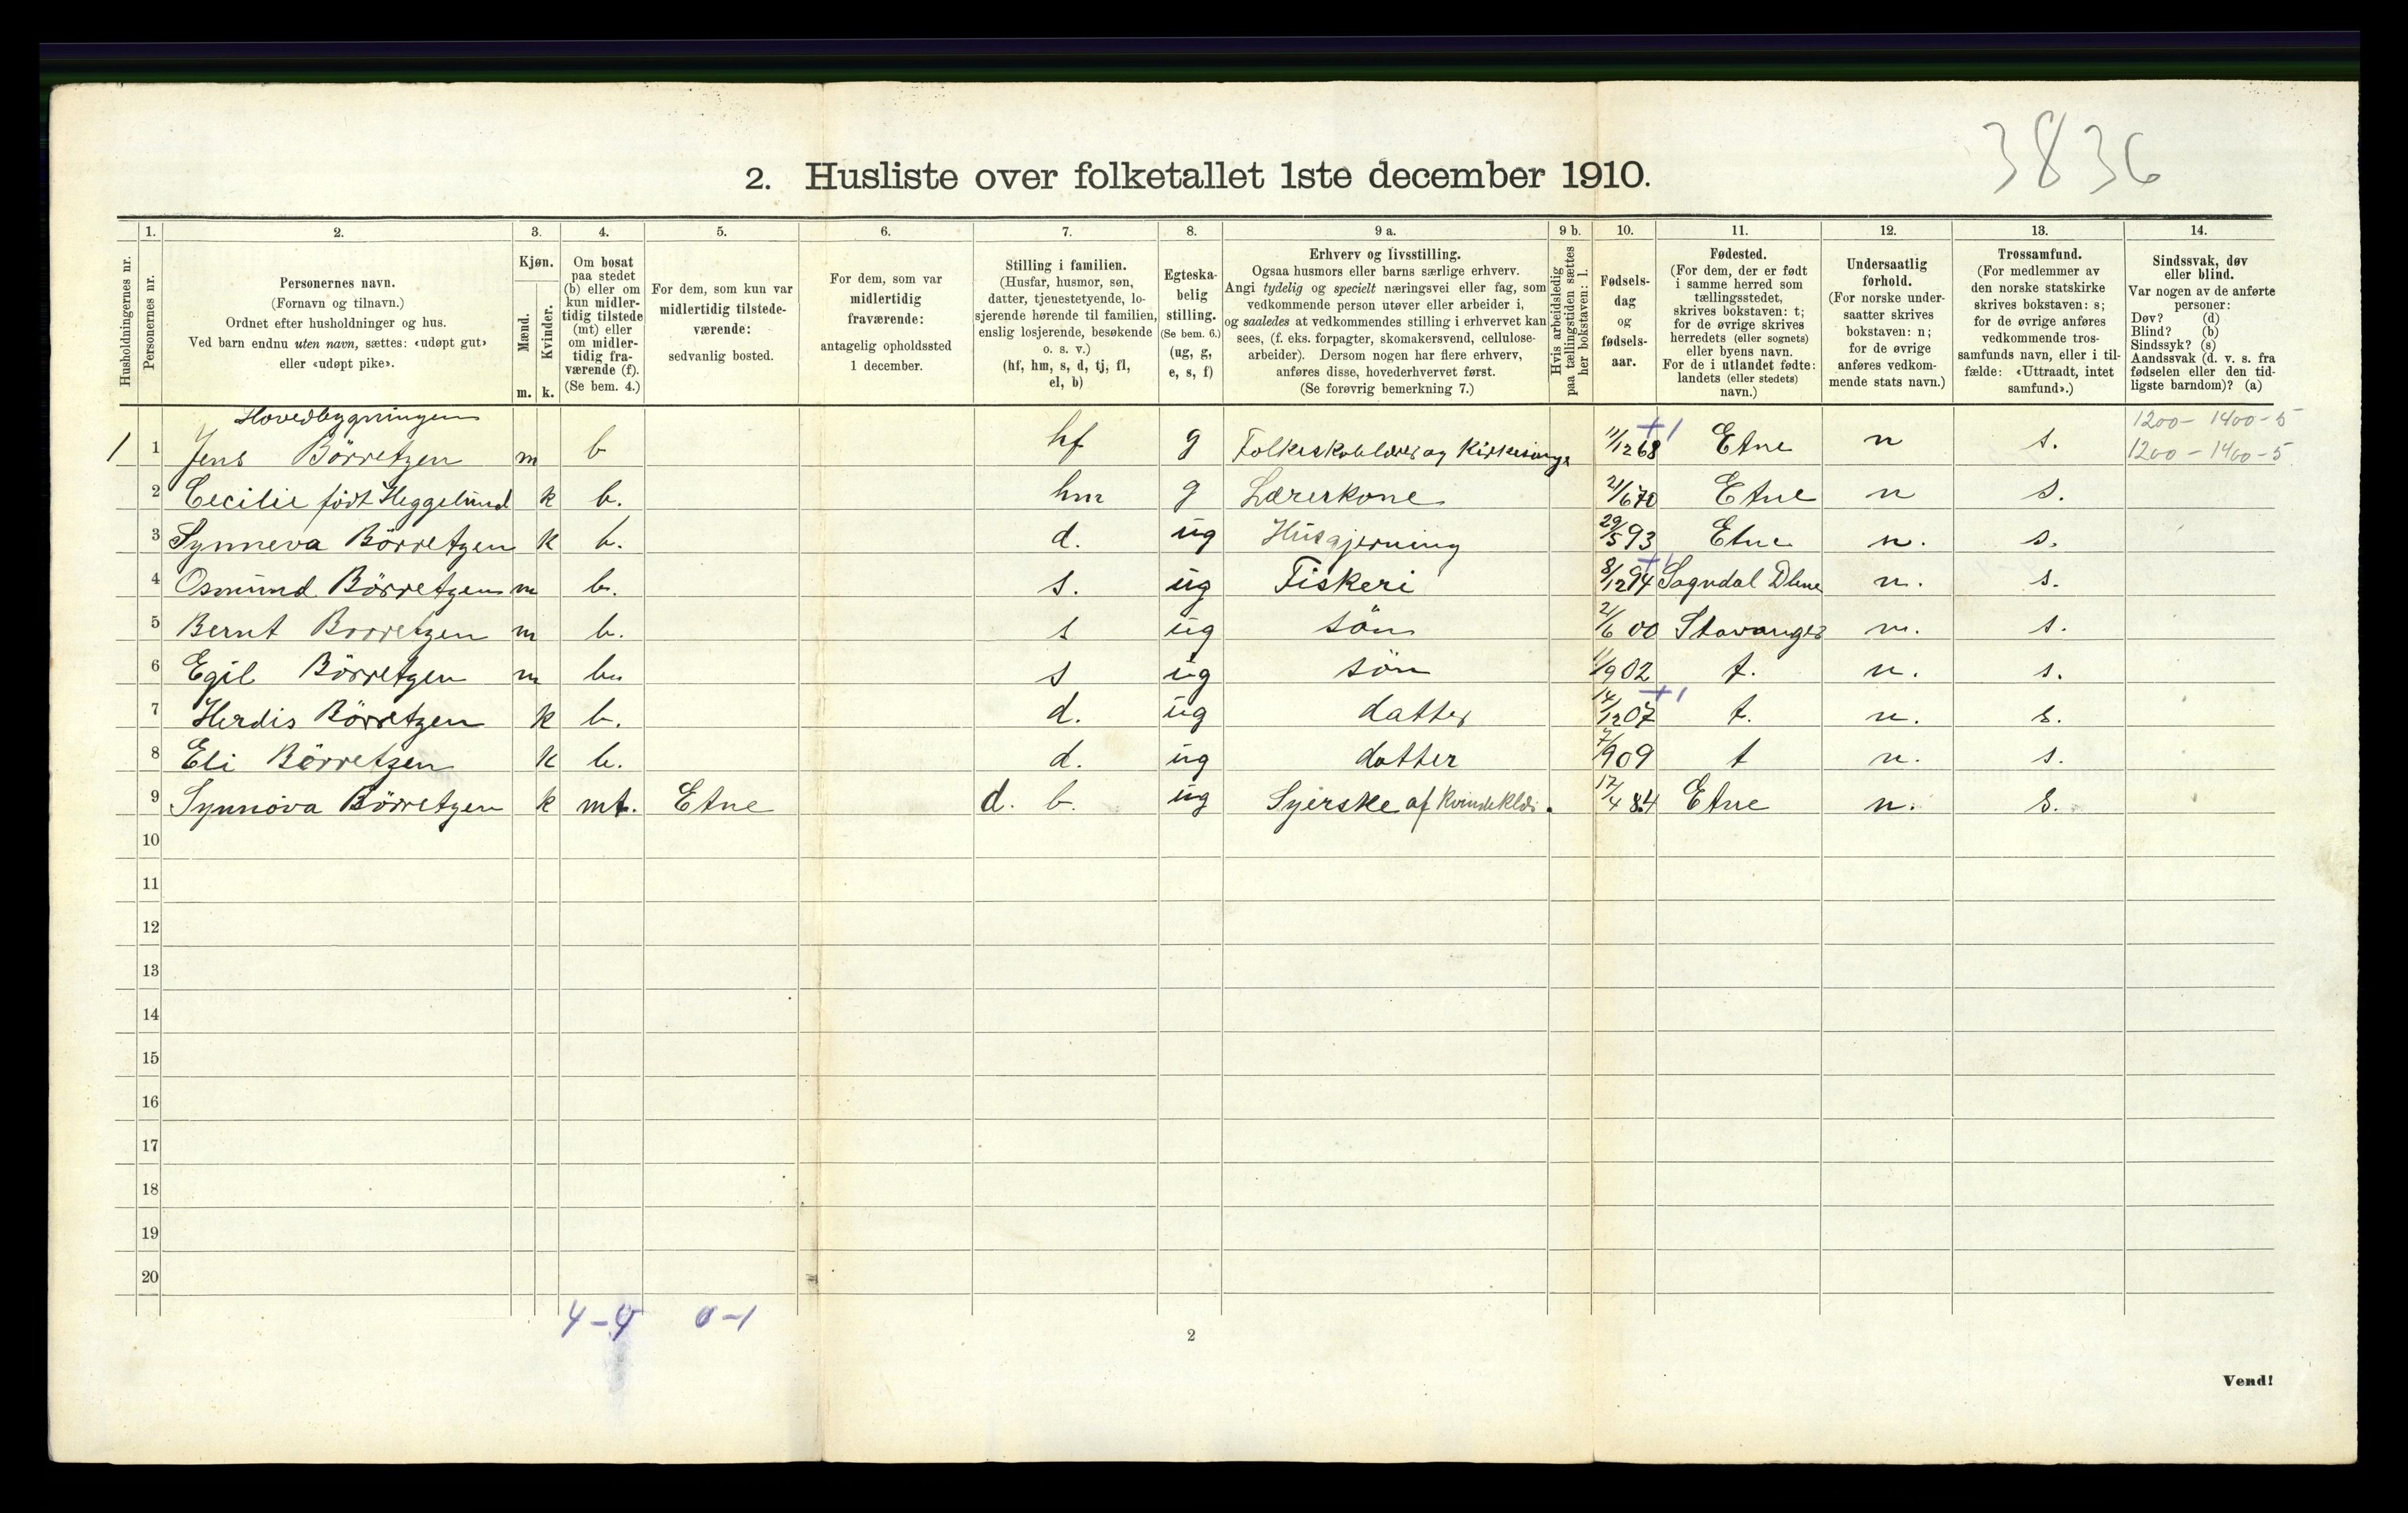 3836
2. Husliste over folketallet 1ste december 1910.
Husholdningernes nr.
1.
Personernes nr.
2.
Personernes navn.
(Fornavn og tilnavn.)
Ordnet efter husholdninger og hus.
Ved barn endnu uten navn, sættes: «udøpt gut»
eller «udøpt pike».
3.
Kjøn.
Mænd.
Kvinder.
m. k.
4.
Om bosat
paa stedet
(b) eller om
kun midler-
tidig tilstede
(mt) eller
om midler-
tidig fra-
værende (f).
(Se bem. 4.)
5.
For dem, som kun var
midlertidig tilstede-
værende:
sedvanlig bosted.
6.
For dem, som var
midlertidig
fraværende:
antagelig opholdssted
1 december.
7.
Stilling i familien.
(Husfar, husmor, søn,
datter, tjenestetyende, lo-
sjerende hørende til familien,
enslig losjerende, besøkende
o. s. v.)
(hf, hm, s, d, tj, fl,
el, b)
8.
Egteska-
belig
stilling.
(Se bem. 6.)
(ug, g,
e, s, f)
9 a.
Erhverv og livsstilling.
Ogsaa husmors eller barns særlige erhverv.
Angi tydelig og specielt næringsvei eller fag, som
vedkommende person utøver eller arbeider i,
og saaledes at vedkommendes stilling i erhvervet kan
sees, (f. eks. forpagter, skomakersvend, cellulose-
arbeider). Dersom nogen har flere erhverv,
anføres disse, hovederhvervet først.
(Se forøvrig bemerkning 7.)
9 b.
Hvis arbeidsledig
paa tællingstiden sættes
her bokstaven: l.
10.
Fødsels-
dag
og
fødsels-
aar.
11.
Fødested.
(For dem, der er født
i samme herred som
tællingsstedet,
skrives bokstaven: t;
for de øvrige skrives
herredets (eller sognets)
eller byens navn.
For de i utlandet fødte:
landets (eller stedets)
navn.)
12.
Undersaatlig
forhold.
(For norske under-
saatter skrives
bokstaven: n;
for de øvrige
anføres vedkom-
mende stats navn.)
13.
Trossamfund.
(For medlemmer av
den norske statskirke
skrives bokstaven: s;
for de øvrige anføres
vedkommende tros-
samfunds navn, eller i til-
fælde: «Uttraadt, intet
samfund».)
14.
Sindssvak, døv
eller blind.
Var nogen av de anførte
personer:
Døv? (d)
Blind? (b)
Sindssyk? (s)
Aandssvak (d. v. s. fra
fødselen eller den tid-
ligste barndom)? (a)
Hovedbygningen
1200 - 1400 - 5
1 1 Jens Börretzen m b hf g Folkeskolelærer og Kirkesanger 11/12 68 +1 Etne n s. 1200 - 1400 - 5
2 Cecilie født Heggelund k b. hm g Lærerkone 21/6 70 Etne n s.
3 Synneva Börretzen k b. d. ug Husgjerning 29/5 93 Etne n. s.
4 Osmund Börretzen m b. s. ug Fiskeri 8/12 94 Sogndal n. s.
5 Bernt Börretzen m b. s ug sön 21/6 00 Stavanger n. s.
6 Egil Börretzen m b. s ug sön 11/9 02 t. n. s.
7 Herdis Börretzen k b. d. ug datter 14/12 07 +1 t. n. s.
8 Eli Börretzen k b. d. ug datter 7/9 09 t n. s.
9 Synnöva Börretzen k mt. Etne d. b. ug Syerske af Kvindeklær. 17/4 84 Etne n. s.
10
11
12
13
14
15
16
17
18
19
20
4-4 0-1
2
Vend!